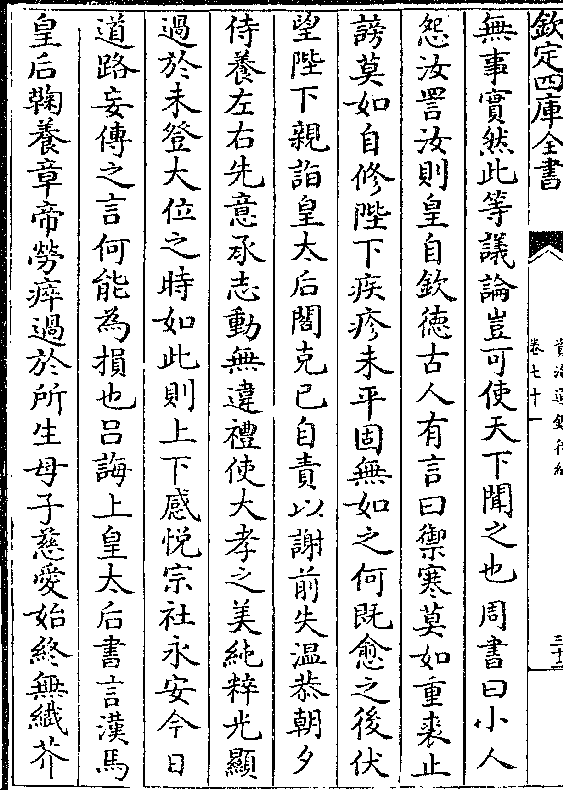 欽定四庫全書
卷七十一
三十三
無事實然此等議論豈可使天下聞之也周書曰小人
怨汝詈汝則皇自欽德古人有言曰禦寒莫如重裘止
謗莫如自修陛下疾疹未平固無如之何既愈之後伏
望陛下親詣皇太后閤克己自責以謝前失温恭朝夕
侍養左右先意承志動無違禮使大孝之美純粹光顯
過於未登大位之時如此則上下感悦宗社永安今日
道路妄傳之言何能為損也吕誨上皇太后書言漢馬
皇后鞠養章帝勞瘁過於所生母子慈愛始終無纎芥